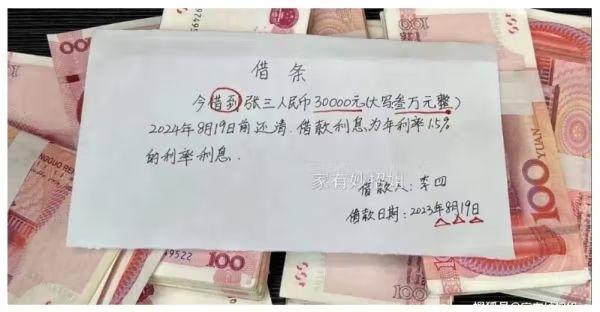 借条
今借到张三人民币30000元(大写叁万元整)
2024年8月19日前还清.借款利息为年利率15%
的利率利息.
家有妙招姐
借款人:李四
借款日期:2023年8月19日
100
100
YUAN
100